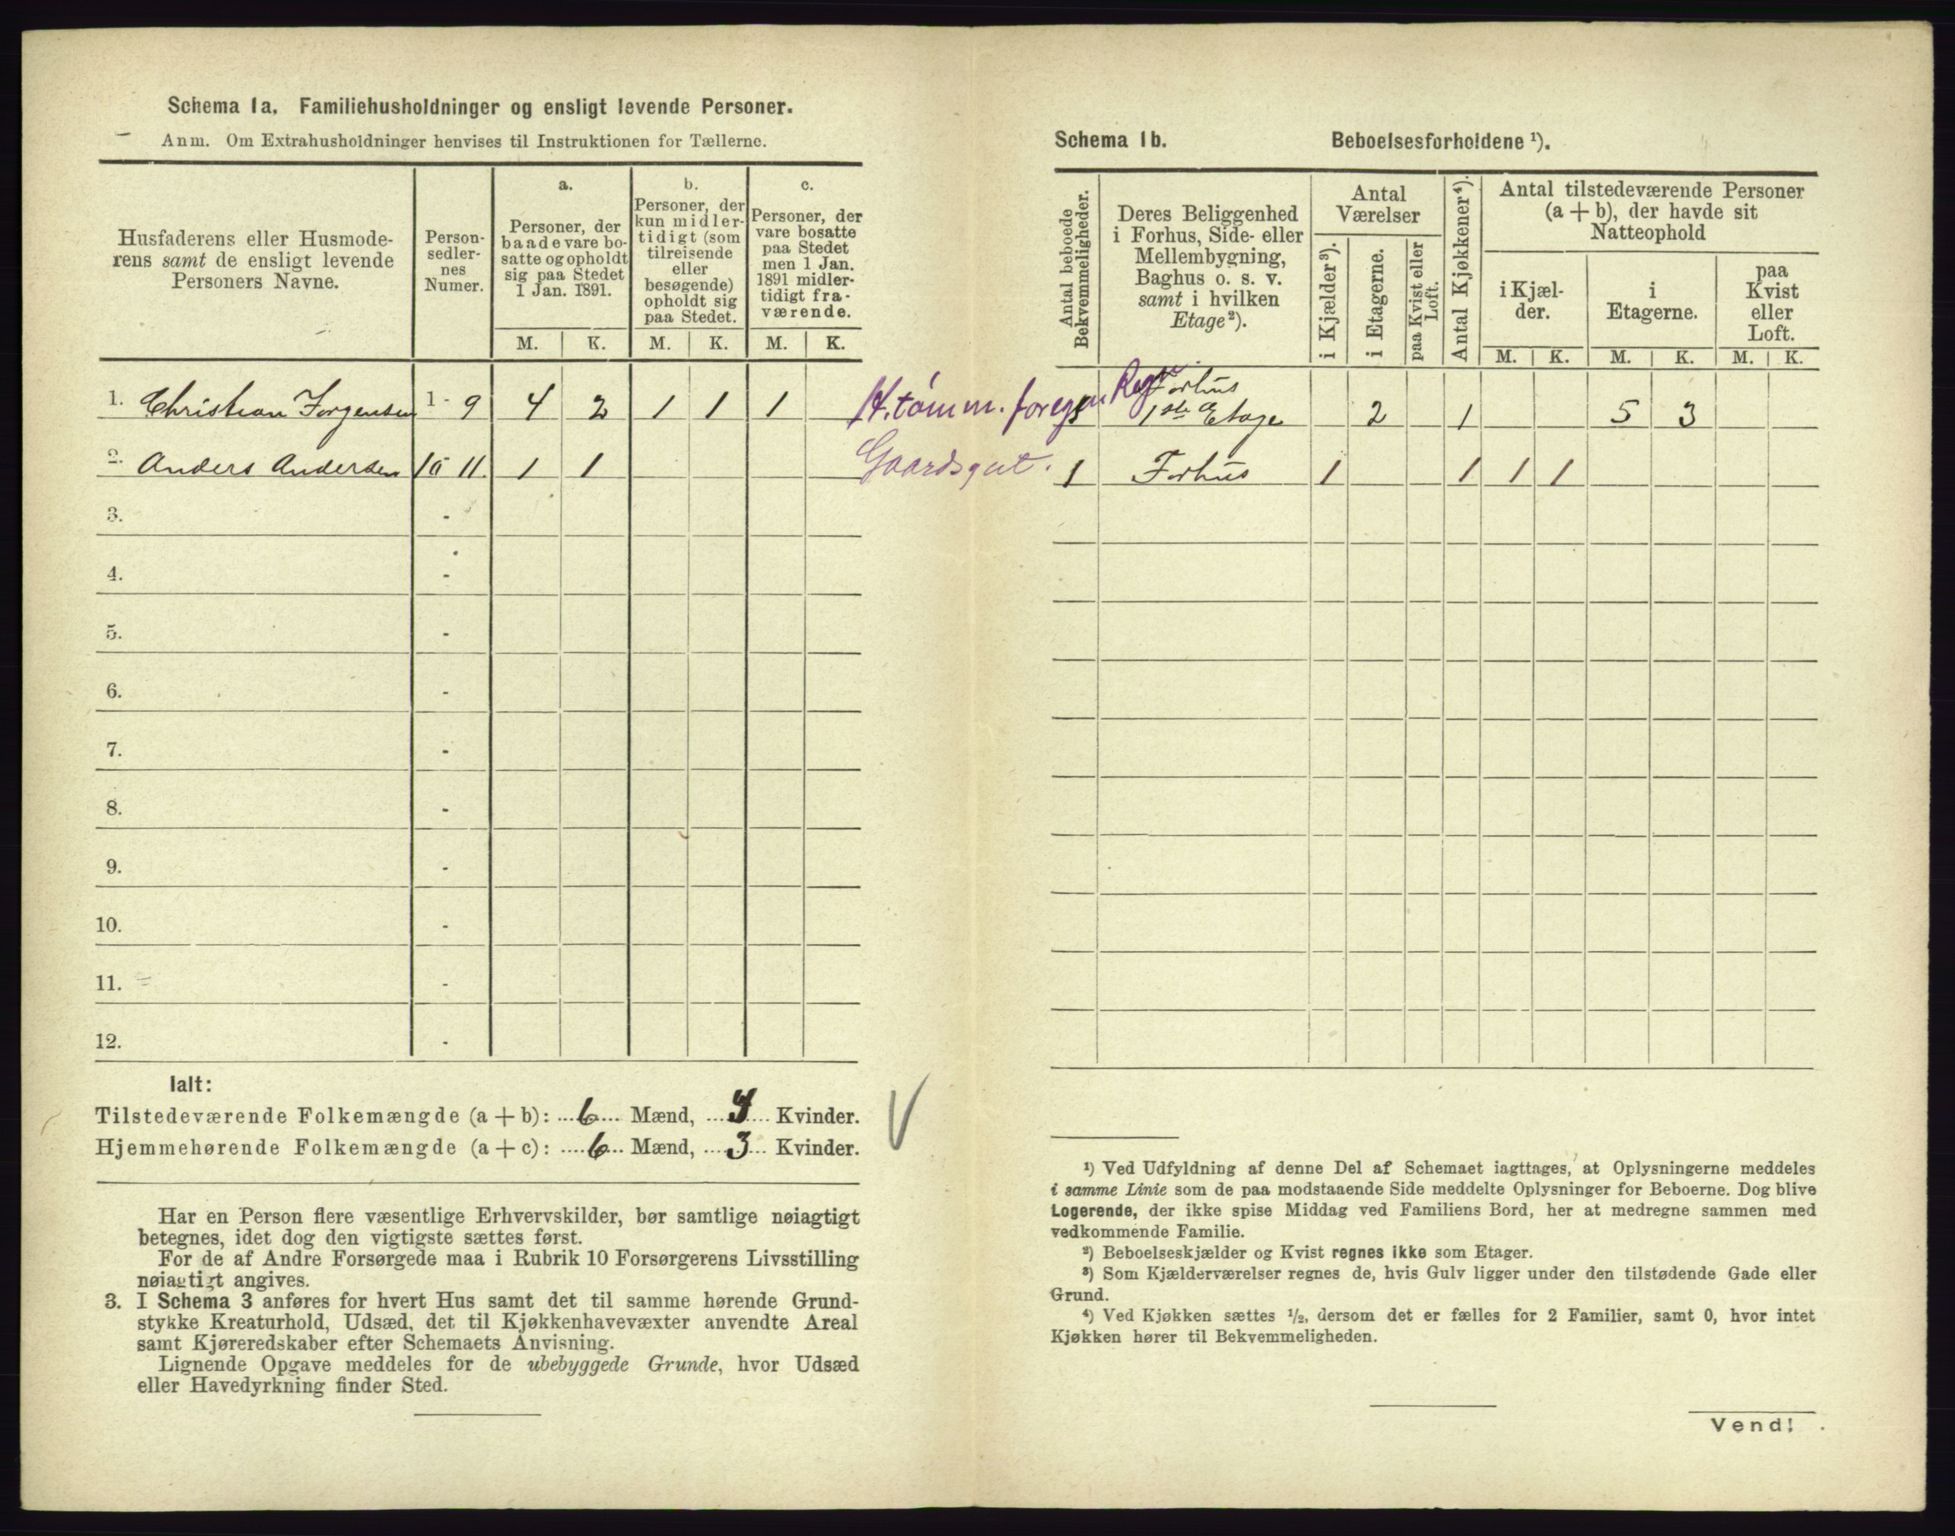 Schema 1a. Familiehusholdninger og ensligt levende Personer.
Anm. Om Extrahusholdninger henvises til Instruktionen for Tællerne.
Husfaderens eller Husmode-
rens samt de ensligt levende
Personers Navne.
Person-
sedler-
nes
Numer.
a.
Personer, der
baade vare bo-
satte og opholdt
sig paa Stedet
1 Jan. 1891.
b.
Personer, der
kun midler-
tidigt (som
tilreisende
eller
besøgende)
opholdt sig
paa Stedet.
c.
Personer, der
vare bosatte
paa Stedet
men 1 Jan.
1891 midler-
tidigt fra-
værende.
M. K. M. K. M. K.
1. Christian Jorgensen 1 - 9 4 2 1 1 1
2. Anders Andersen 10 11 1 1
3. -
4. -
5. -
6. -
7. -
8. -
9. -
10. -
11. -
12. -
Ialt:
Tilstedeværende Folkemængde (a + b): 6 Mænd, 4 Kvinder.
Hjemmehørende Folkemængde (a + c): 6 Mænd, 3 Kvinder.
Har en Person flere væsentlige Erhvervskilder, bør samtlige nøiagtigt
betegnes, idet dog den vigtigste sættes først.
For de af Andre Forsørgede maa i Rubrik 10 Forsørgerens Livsstilling
nøiagtigt angives.
3. I Schema 3 anføres for hvert Hus samt det til samme hørende Grund-
stykke Kreaturhold, Udsæd, det til Kjøkkenhavevæxter anvendte Areal
samt Kjøreredskaber efter Schemaets Anvisning.
Lignende Opgave meddeles for de ubebyggede Grunde, hvor Udsæd
eller Havedyrkning finder Sted.
Schema 1b. Beboelsesforholdene ¹).
Antal beboede
Bekvemmeligheder.
Deres Beliggenhed
i Forhus, Side- eller
Mellembygning,
Baghus o. s. v.
samt i hvilken
Etage²).
Antal
Værelser
i Kjælder³).
i Etagerne.
paa Kvist eller
Loft.
Antal Kjøkkener⁴).
Antal tilstedeværende Personer
(a + b), der havde sit
Natteophold
i Kjæl-
der.
i
Etagerne.
paa
Kvist
eller
Loft.
M. K. M. K. M. K.
H. tømm. foregn
Forhus
1 1ste Etage 2 1 5 3
Gaardsgut.
1 Forhus 1 1 1 1
¹) Ved Udfyldning af denne Del af Schemaet iagttages, at Oplysningerne meddeles
i samme Linie som de paa modstaaende Side meddelte Oplysninger for Beboerne. Dog blive
Logerende, der ikke spise Middag ved Familiens Bord, her at medregne sammen med
vedkommende Familie.
²) Beboelseskjælder og Kvist regnes ikke som Etager.
³) Som Kjælderværelser regnes de, hvis Gulv ligger under den tilstødende Gade eller
Grund.
⁴) Ved Kjøkken sættes ½, dersom det er fælles for 2 Familier, samt 0, hvor intet
Kjøkken hører til Bekvemmeligheden.
Vend!